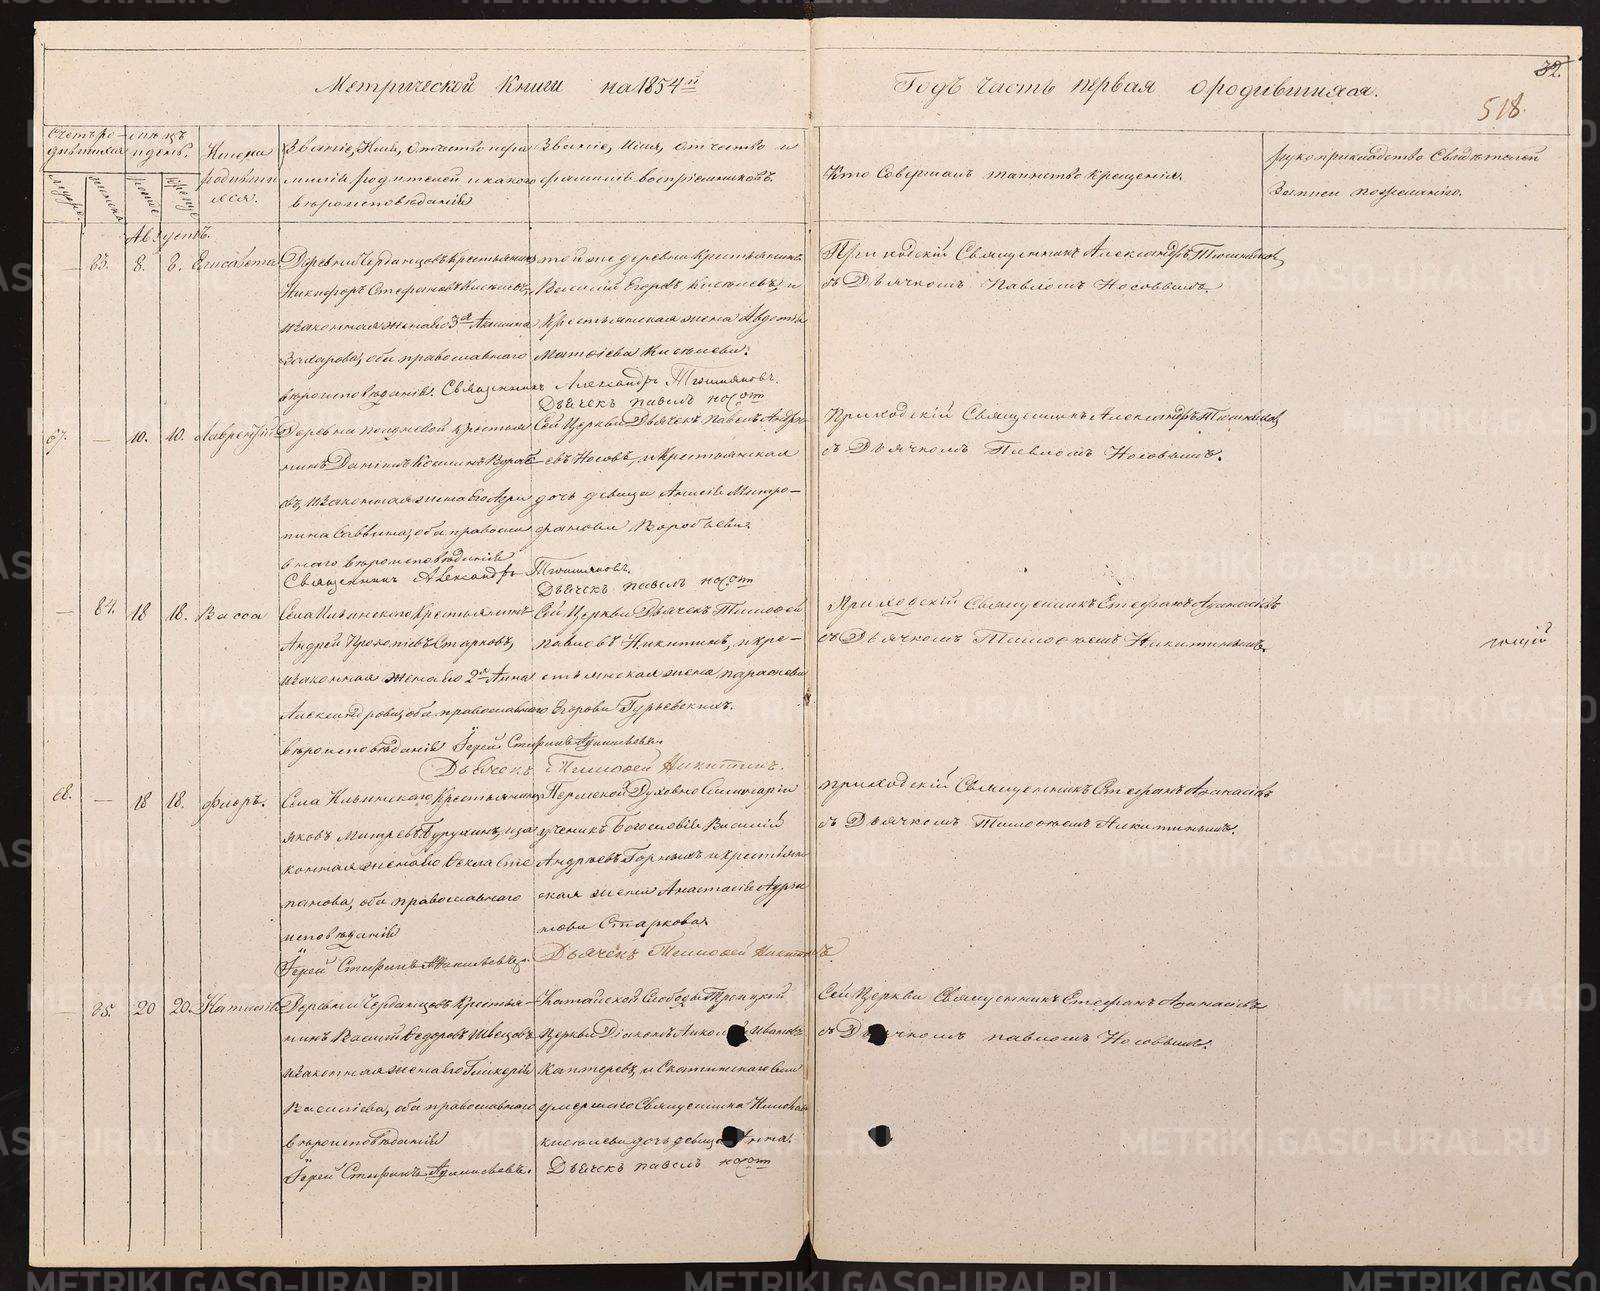 Метрической Книги на 1854й Годъ часть первая ородившихся.
32.
518.
Счетъ ро-
дившихся
мужс.
женск.
мѣсяцъ
и день.
рожде
креще
Имена
родивши
хся.
Званіе, Имя, отчество и фа
милія родителей и какого
вѣроисповѣданія
Званіе, Имя, отчество и
фамилія воспріемниковъ.
Кто Совершалъ таинство крещенія.
рукоприкладство Свидѣтелей
Записи по желанію.
Августъ.
— 83. 8. 8. Елисавета
Деревни Черданцовъ крестьянинъ
Никифоръ Стефановъ Киселевъ,
и законная жена его 3я Акилина
Захарова, оба православнаго
вѣроисповѣданія. Священникъ Александръ Тюшняковъ.
той же деревни крестьянинъ
Василій Егоровъ Киселевъ, и
Крестьянская жена Авдотья
Матѳіева Киселева.
Дьячекъ павелъ носотъ
Приходскій Священникъ Александръ Тюшняковъ,
съ Дьячкомъ Павломъ Носовымъ.
67. — 10. 10. Лаврентій
Деревни поздневой крестья
нинъ Даніилъ Козминъ Вороб
евъ, и законная жена его Агри
пина Саввина, оба правосла
внаго вѣроисповѣданія
Священникъ Александръ Тюшняковъ.
Сей Церкви Дьячекъ Павелъ Андре
евъ Носовъ, и Крестьянская
дочь девица Анисія Митро—
фанова Воробьева.
Дьячекъ павелъ носотъ
Приходскій Священникъ Александръ Тюшняковъ,
съ Дьячкомъ Павломъ Носовымъ.
— 84. 18 18. Васса
Села Ильинскаго Крестьянинъ
Андрей Прокопіевъ Старковъ,
и законная жена его 2я Анна
Александрова, оба православнаго
вѣроисповѣданія Іерей Стефанъ Аѳанасьевъ.
Сей Церкви Дьячекъ Тимоѳей
павловъ Никитинъ, и кре—
стьянская жена парасковья
Егорова Гурьевскихъ.
Дьячекъ Тимоѳей Никитинъ.
Приходскій Священникъ Стефанъ Аѳанасіевъ
съ Дьячкомъ Тимоѳеемъ Никитинымъ.
68. — 18 18. Флоръ.
Села Ильинскаго Крестьянинъ
яковъ Митревъ, и за
конная жена его Ѳекла Сте
панова, оба православнаго
исповѣданія
Іерей Стефанъ Аѳанасьевъ.
Пермской Духовной Семинаріи
ученикъ Богословія Василій
Андреевъ Горныхъ и крестьян
ская жена Анастасія Андрія
нова Старкова
Дьячекъ Тимоѳей Никитинъ.
приходскій Священникъ Стефанъ Аѳанасіевъ
съ Дьячкомъ Тимоѳеемъ Никитинымъ.
— 85. 20 20. Наталія
Деревни Черданцовъ крестья—
нинъ Василій Ѳедоровъ Швецовъ
и законная жена его Гликерія
Василіева, оба православнаго
вѣроисповѣданія
Іерей Стефанъ Аѳанасьевъ.
Катайской Слободы Троицкой
Церкви Діаконъ Николай Ивановъ
Каптеревъ, и Скатинскаго села
умершаго Священника Николая
киселева дочь девица Анна.
Дьячекъ павелъ носотъ
Сей Церкви Священникъ Стефанъ Аѳанасіевъ
съ Дьячкомъ павломъ Носовымъ.